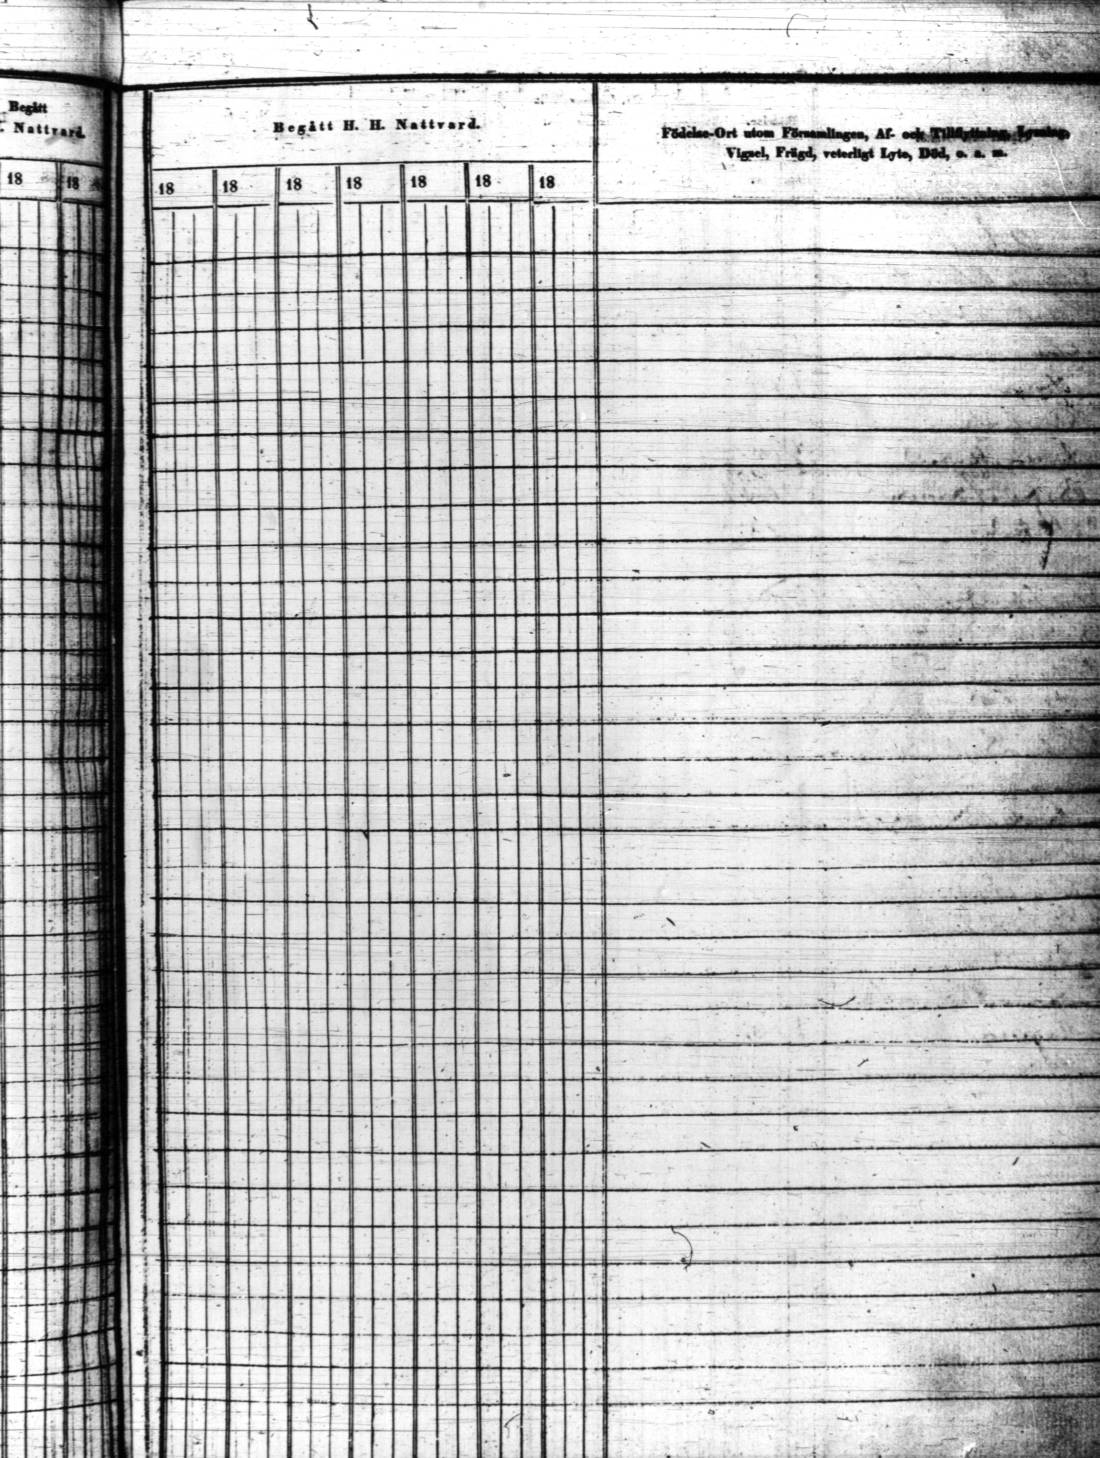 Begått
. Nattvard.
18 18
Begått H. H. Nattvard.
18 18 18 18 18 18 18
Födelse-Ort utom Församlingen, Af- och Tillflyttning, Lysning,
Vigsel, Frägd, veterligt Lyte, Död, o. s. m.